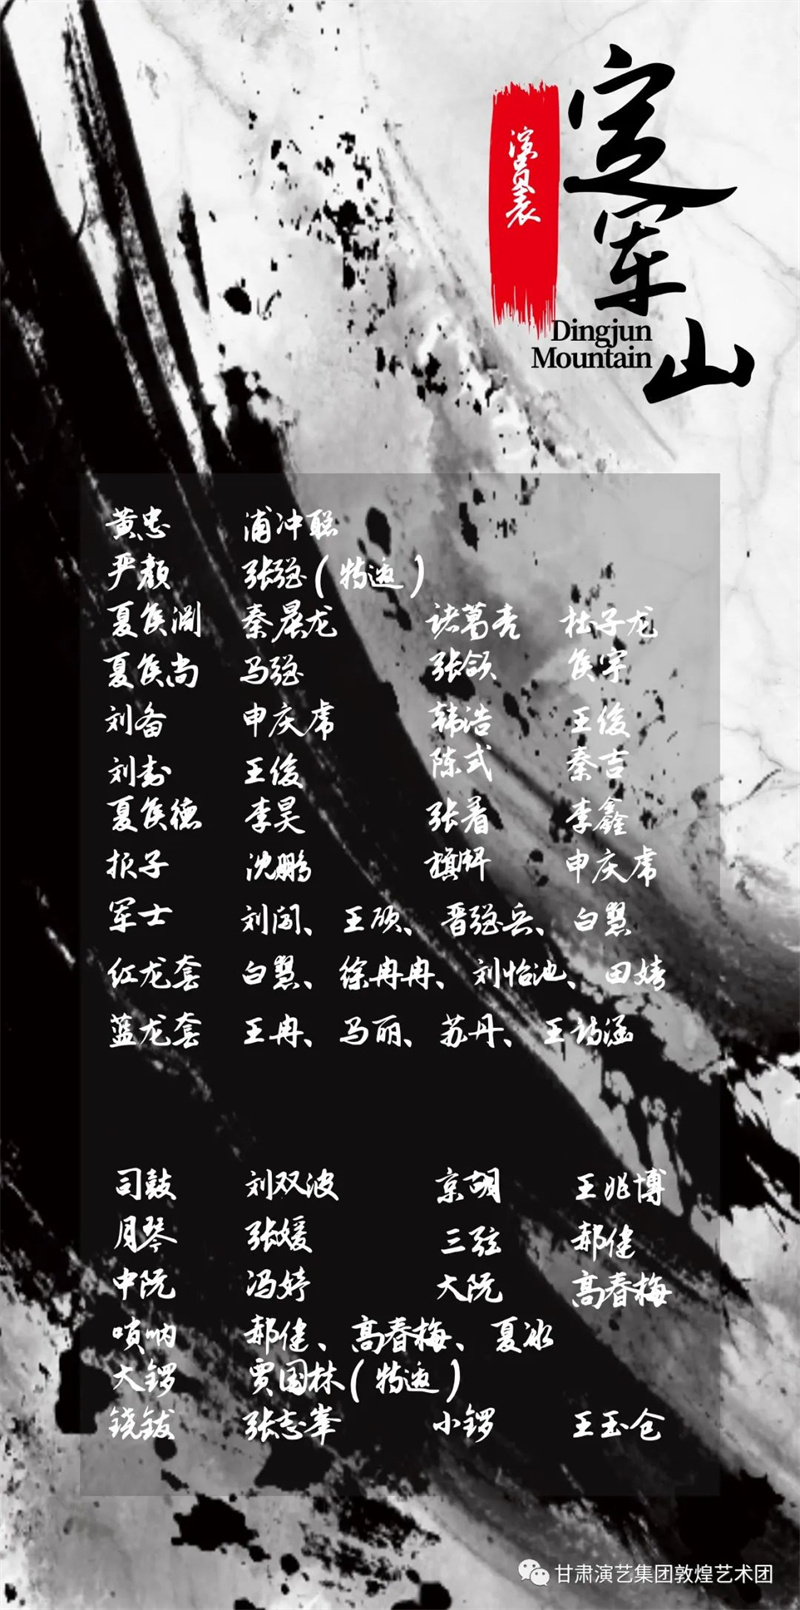 定军山
演员表
Dingjun
Mountain
黄忠 浦冲聪
严颜 张强(特邀)
夏侯渊 秦晨龙 诸葛亮 杜子龙
夏侯尚 马强 张郃 侯宇
刘备 申庆席 韩浩 王俊
刘封 王俊 陈式 秦吉
夏侯德 李昊 张着 李鑫
报子 沈鹏 旗牌 申庆席
军士 刘闯、王硕、晋强兵、白慧
红龙套 白慧、徐冉冉、刘怡池、田婧
蓝龙套 王冉、马丽、苏丹、王诗涵
司鼓 刘双波 京胡 王兆博
月琴 张媛 三弦 郝健
中阮 冯婷 大阮 高春梅
唢呐 郝健、高春梅、夏冰
大锣 贾国林(特邀)
铙钹 张志峰 小锣 王玉仓
甘肃演艺集团敦煌艺术团